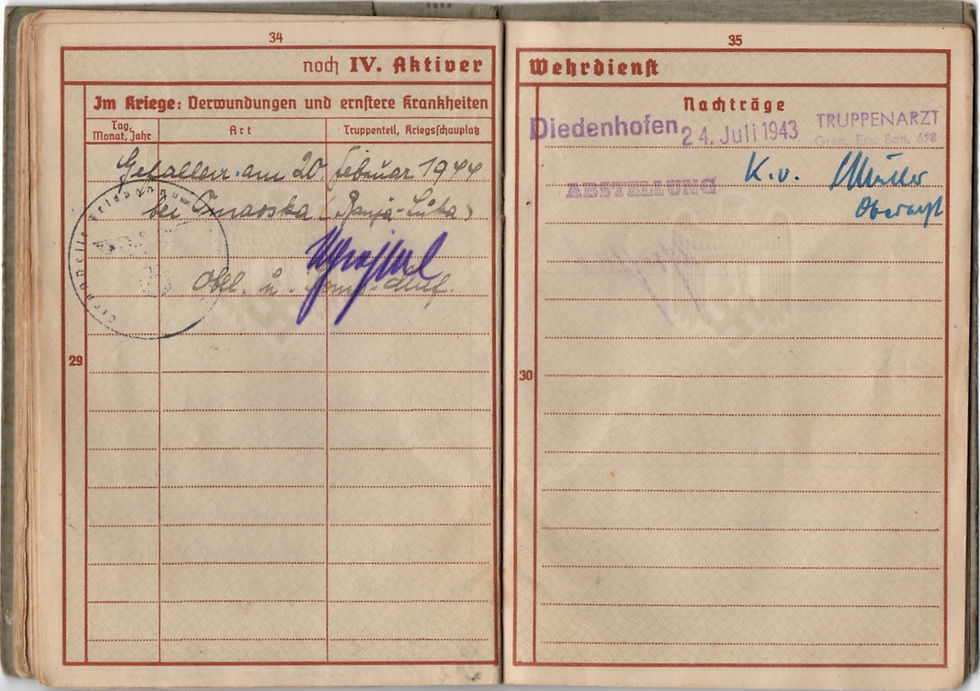 34
noch IV. Aktiver
Im Kriege: Verwundungen und ernstere Krankheiten
Tag, Monat, Jahr
Art
Truppenteil, Kriegsschauplatz
Gefallen am 20 Februar 1944
bei Omarska (Banja-Luka)
Obl. u.
29
35
Wehrdienst
Nachträge
Diedenhofen 24. Juli 1943 TRUPPENARZT
ABSTELLUNG K.v. Müller
Oberarzt
30